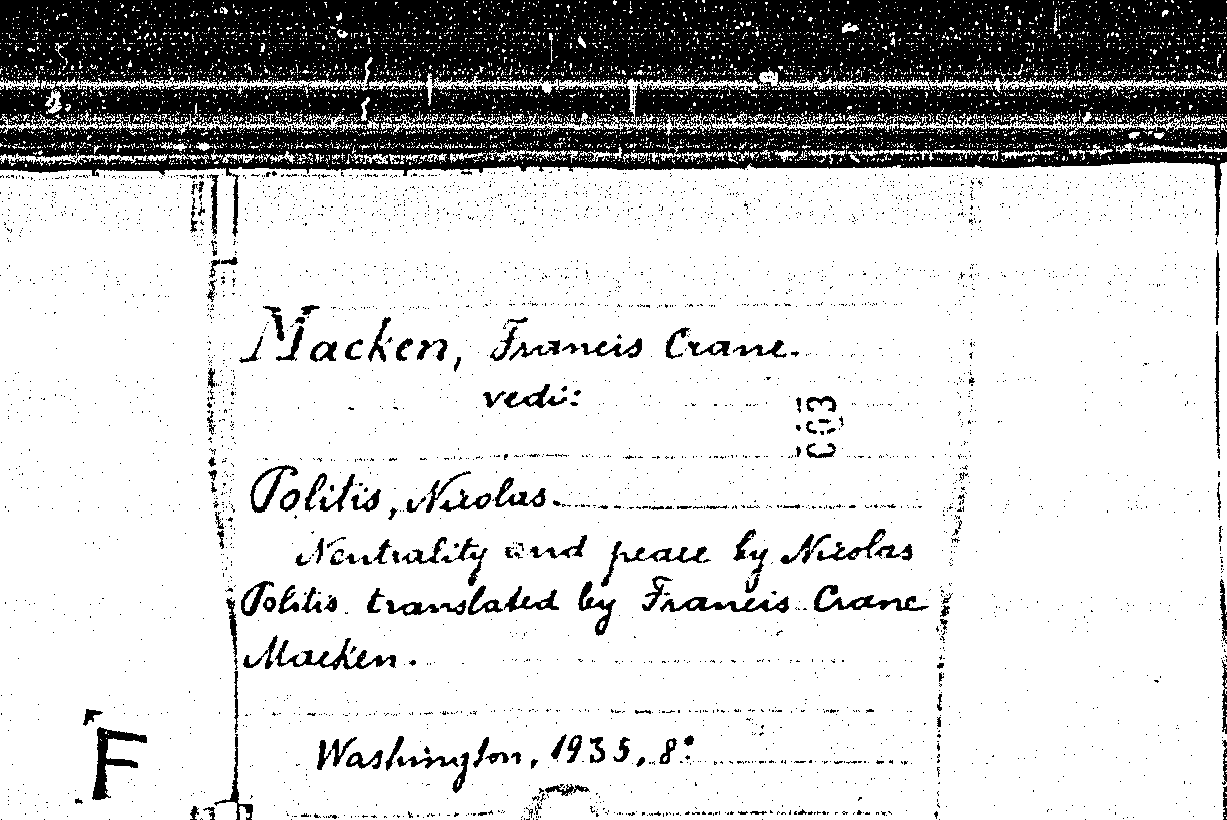 Macken, Francis Crane.
vedi:
C03
Politis, Nicolas.
Neutrality and peace by Nicolas
Politis translated by Francis Crane
Macken.
F
Washington, 1935, 8°.